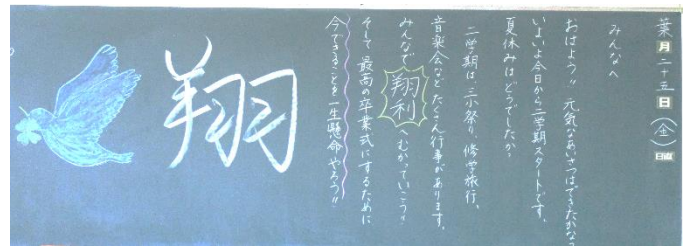 葉月二十五日(金)日直
みんなへ
おはよう!! 元気なあいさつはできたかな
いよいよ今日から二学期スタートです。
夏休みはどうでしたか?
二学期は、三小祭り、修学旅行、
音楽会など たくさん行事があります。
みんなで 翔利 へむかっていこう!
そして 最高の卒業式にするために
今できることを一生懸命やろう!!
翔